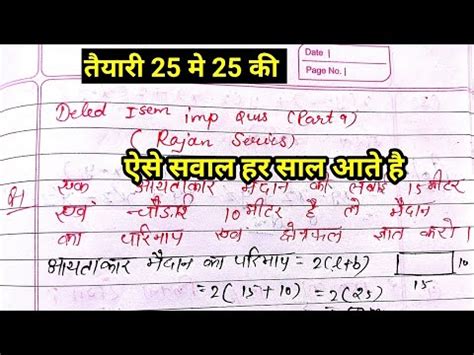 तैयारी 25 मे 25 की
Date |
Page No. |
Deled I sem imp Qus (Part 9)
(Rajan Series)
ऐसे सवाल हर साल आते है
Q1 एक आयताकार मैदान की लंबाई 15 मीटर
एवं चौड़ाई 10 मीटर है तो मैदान
का परिमाप एवं क्षेत्रफल ज्ञात करो।
आयताकार मैदान का परिमाप = 2(l+b)
10
15
= 2(15+10) = 2(25)